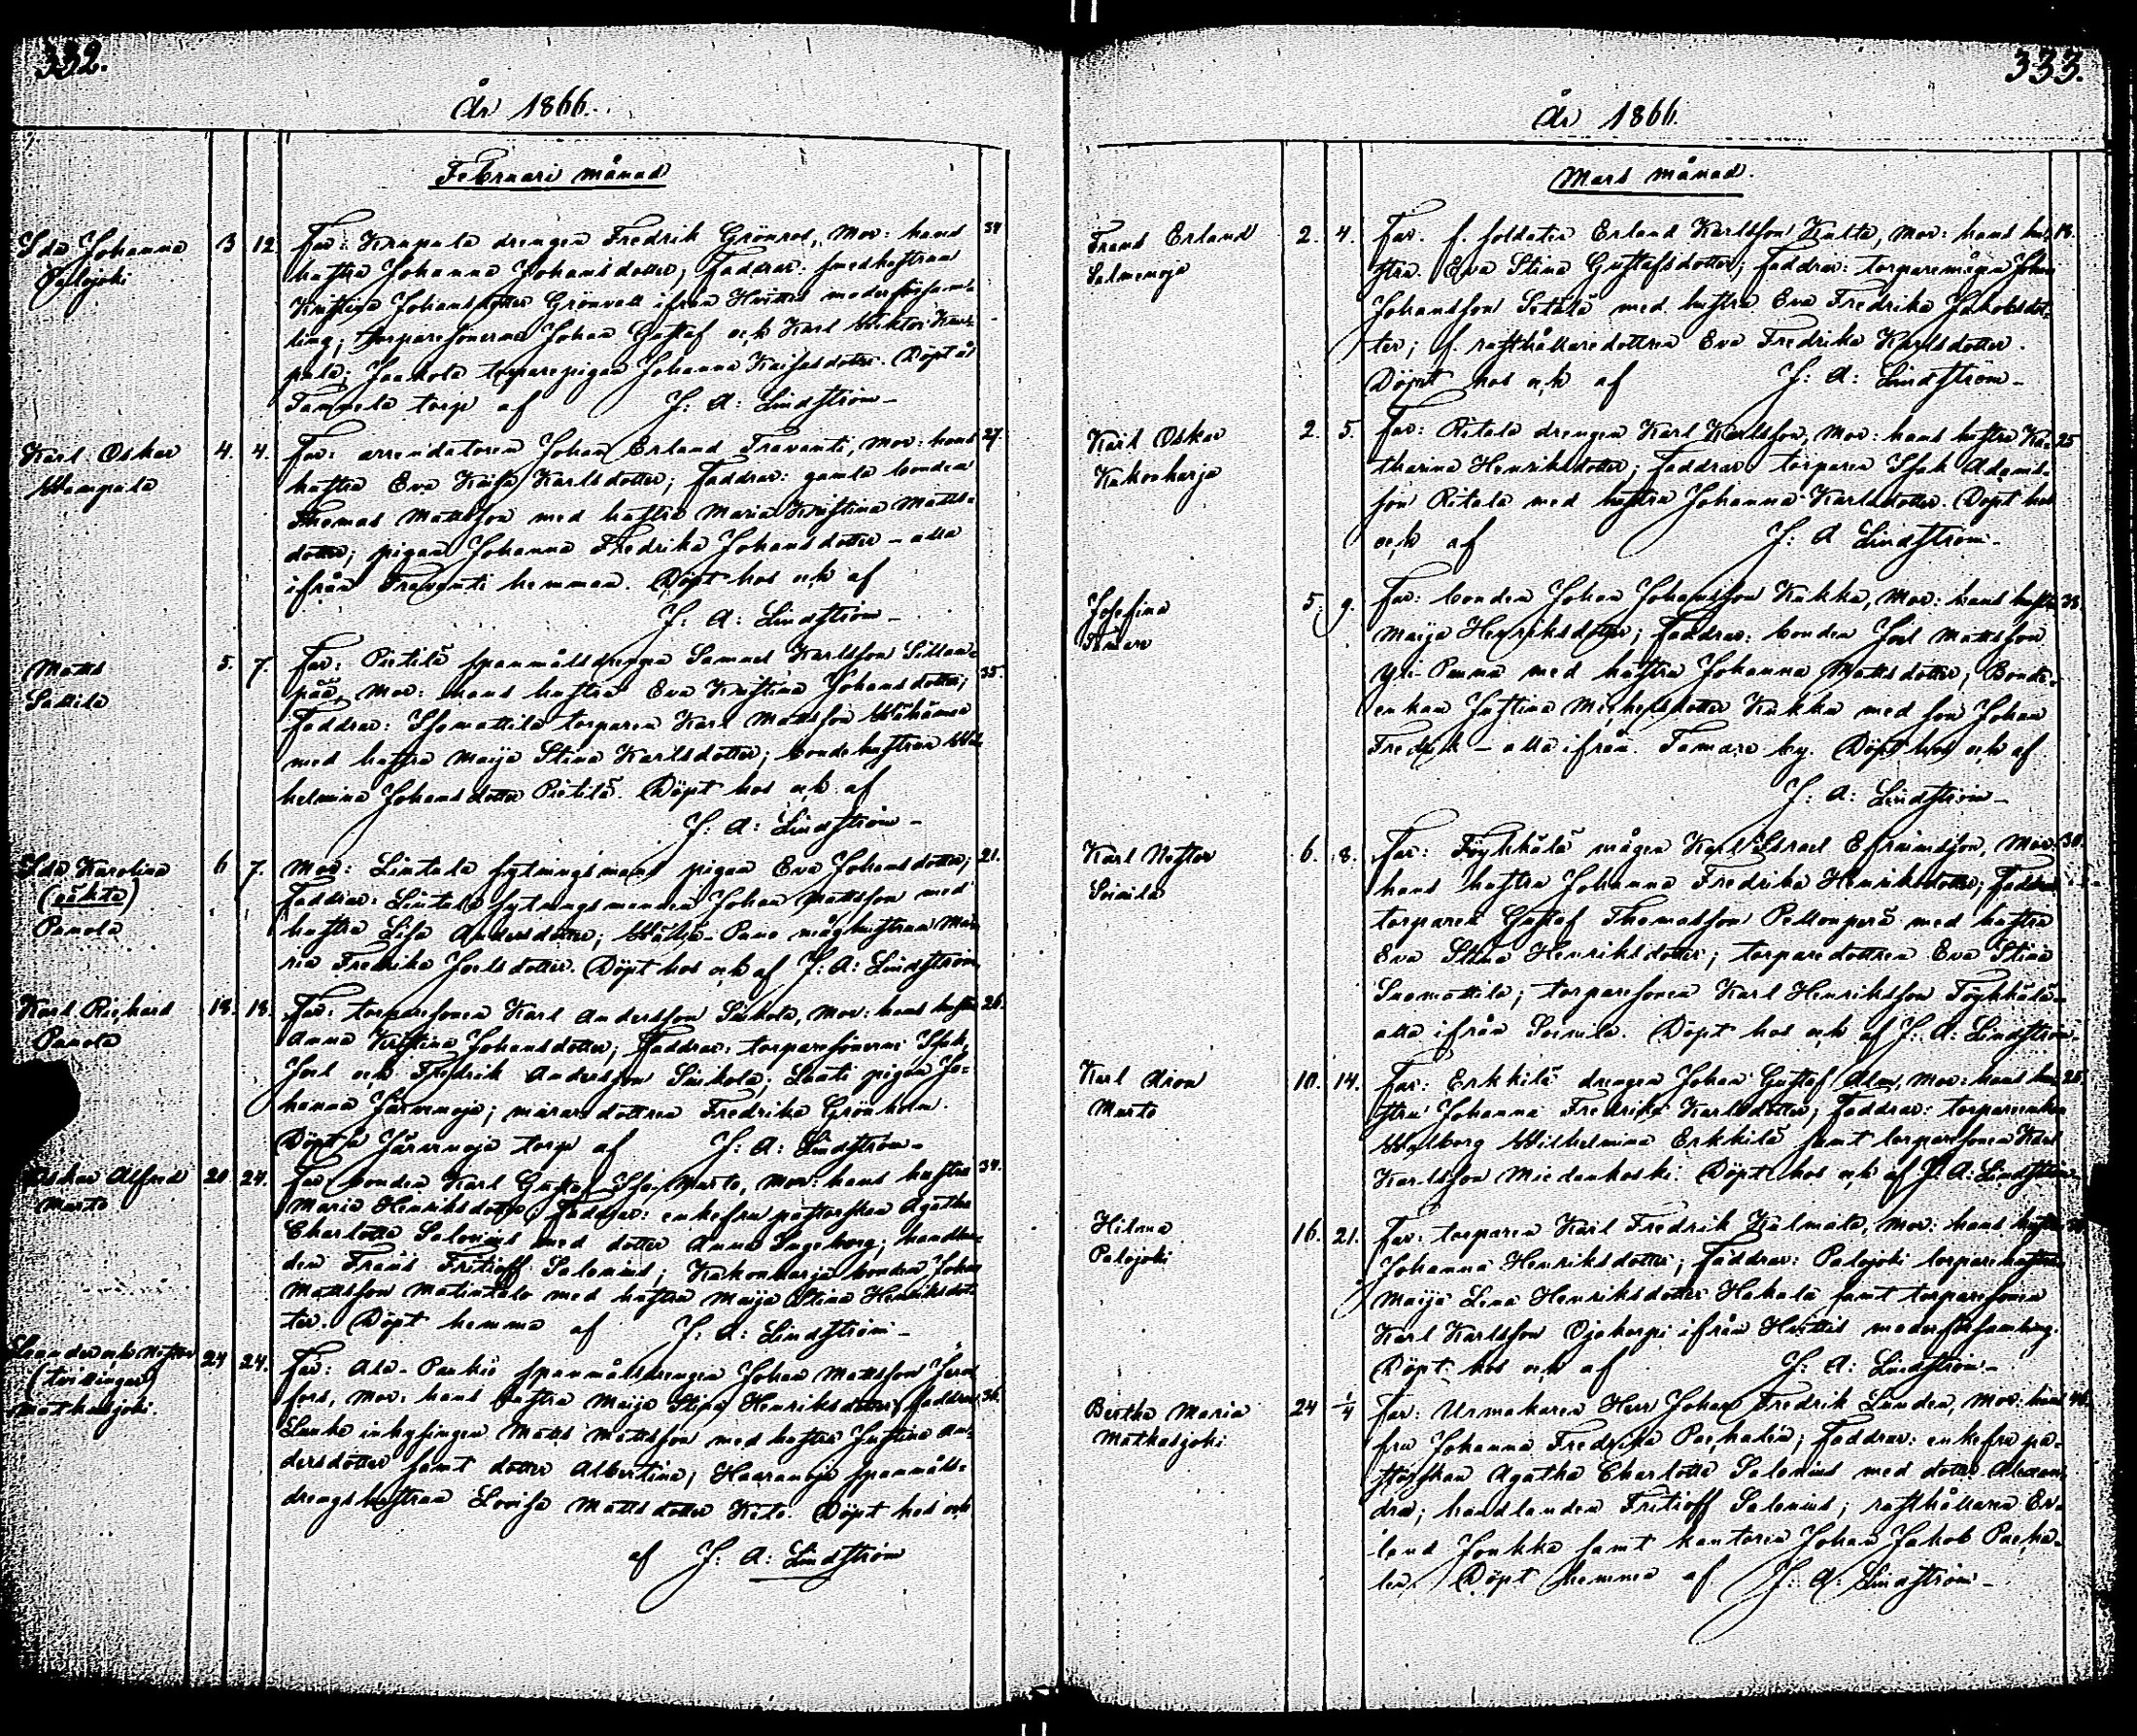 332.
År 1866.
Februari månad
Ida Johanna 3 12 Far: Krapula drengen Fredrik Grönros, Mor: hans 34
Palojoki hustru Johanna Johansdotter; Faddrar: smedhustrun
Johansdotter Grönvall ifrån Hvittis moderförsam-
ling; torparesönerna Johan Gustaf och Karl Viktor
Jaakola torparepigan Johanna Döpt å
Tammela torp af J: A: Lindström-
Karl Oskar 4. 4. Far: arrendatoren Johan Erland Travanti, Mor: hans 27.
Wampula hustru Eva Kaisa Karlsdotter; Faddrar: gamla bonden
Thomas Mattsson med hustru Maria Kristina Matts-
dotter; pigan Johanna Fredrika Johansdotter - alla
ifrån Travanti hemman. Döpt hos och af
J: A: Lindström-
Matts 5. 7. Far: Pietilä spanmålsdrengen Samuel Karlsson Sillan- 35.
Sallila pää, Mor: hans hustru Eva Kristina Johansdotter;
Faddrar: Isomattila torparen Karl Mattsson Wähämaa
med hustru Maija Stina Karlsdotter; bondehustrun Wil-
helmina Johansdotter Pietilä. Döpt hos och af
J: A: Lindström-
Ida Karolina 6 7. Mor: Lintala sytningsmans pigan Eva Johansdotter; 21.
(oäkta) Faddrar: Lintala sytningsmannen Johan Mattsson med
Panola hustru Lisa Andersdotter; Wähä-Pano måghustrun Ma-
ria Fredrika Joelsdotter. Döpt hos och af J: A: Lindström
Karl Richard 18. 18. Far: torparesonen Karl Andersson Siukola, Mor: hans hustru 26.
Panola Anna Kristina Johansdotter; Faddrar: torparesönerne Isak,
Joel och Fredrik Andersson Siukola; Lauti pigan Jo-
hanna Järvenoja; murare dottren Fredrika Grönholm.
Döpt å Järvenoja torp af J: A: Lindström-
Oskar Alfred 20 24. Far bonden Karl Gustaf Iso-Murto, Mor: hans hustru 34.
Murto Maria Henriksdotter Faddrar: enkefru pastorskan Agatha
Charlotta Salonius med dotter Anna Ingeborg; handlan-
den Frans Fritioff Salenius; Kukonharja bonden Johan
Mattsson Matintalo med hustru Maija Stina Henriksdot-
ter. Döpt hemma af J: A: Lindström-
Leander och Nestor 24 24. Far: Ala-Paukio spanmålsdrengen Johan Mattsson
(tvillingar) fors, Mor: hans hustru Maija Stina Henriksdotter; Faddrar; 36.
Matkusjoki. inhysingen Matts Mattsson med hustru Justina An-
dersdotter samt dotter Albertina; Haaranoja spanmåls-
drengshustrun Lovisa Mattsdotter Döpt hos och
af J: A: Lindström
333.
År 1866.
Mars månad.
Frans Erland 2. 4. Far. f. soldaten Erland Karlsson Kulta, Mor: hans hu- 18.
Salmenoja stru. Eva Stina Gustafsdotter; Faddrar: torparemågen Johan
Johansson Setälä med hustru Eva Fredrika Jakobsdot-
ter; f. rusthållaredottren Eva Fredrika Karlsdotter.
Döpt hos och af J: A: Lindström-
Karl Oskar 2. 5. Far: Ritala drengen Karl Karlsson, Mor: hans hustru Ka- 25
Kukonharja tharina Henriksdotter; Faddrar: torparen Isak Adams-
son Ritala med hustru Johanna Karlsdotter. Döpt hos
och af J: A Lindström-
Josefina 5. 9. Far: bonden Johan Johansson Kukka, Mor: hans hustru 38
Tamare Maija Henriksdotter; Faddrar: bonden Joel Mattsson
Yli-Panna med hustru Johanna Mattsdotter; Bonde-
enkan Justina Michelsdotter Kukka med son Johan
Fredrik - alla ifrån Tamare by. Döpt hos och af
J: A: Lindström-
Karl Nestor 6. 8. Far: Töykkälä mågen Karl Israel Efraimsson, Mor: 30.
Soinila hans hustru Johanna Fredrika Henriksdotter; Faddrar
torparen Gustaf Thomasson Peltonperä med hustru
Eva Stina Henriksdotter; torparedottren Eva Stina
Suomattila; torparesonen Karl Henriksson Töykkälä-
alla ifrån Soinila. Döpt hos och af J: A: Lindström-
Karl Aron 10. 14. Far: Erkkilä drengen Johan Gustaf Alm, Mor: hans hu- 25.
Murto stru Johanna Fredrika Karlsdotter; Faddrar: torpareenkan
Walborg Wilhelmina Erkkilä samt torparesonen Karl
Karlsson Miedankoski. Döpt hos och af J: A: Lindström
Hilma 16. 21. Far: torparen Karl Fredrik Kulmala, Mor: hans hustru
Palojoki Johanna Henriksdotter; Faddrar: Palojoki torparehustrun
Maija Lena Henriksdotter Hakala samt torparesonen
Karl Karlsson Ojakorpi ifrån Hvittis moderförsamling.
Döpt hos och af J: A: Lindström-
Bertha Maria 24 1/4 Far: Urmakaren Herr Johan Fredrik Lunden, Mor: hans
Matkusjoki fru Johanna Fredrika Pachalén; Faddrar: enkefru pa-
storskan Agatha Charlotta Salenius med dotter Alexan-
dra; handlanden Fritioff Salenius; rusthållaren Er-
land Jonkka samt kantoren Johan Jakob Pacha-
len. Döpt hemma af J: A: Lindström-